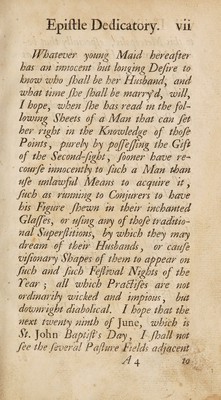 Epiſtle Dedicatory. vii
Whatever young Maid hereafter
has an innocent but longing Deſire to
know who ſhall be her Husband, and
what time ſhe ſhall be marry'd, will,
I hope, when ſhe has read in the fol-
lowing Sheets of a Man that can ſet
her right in the Knowledge of thoſe
Points, purely by poſſeſſing the Gift
of the Second-ſight, ſooner have re-
courſe innocently to ſuch a Man than
uſe unlawful Means to acquire it,
ſuch as running to Conjurers to have
his Figure ſhewn in their inchanted
Glaſſes, or uſing any of thoſe traditio-
nal Superſtitions, by which they may
dream of their Husbands, or cauſe
viſionary Shapes of them to appear on
ſuch and ſuch Feſtival Nights of the
Year; all which Practiſes are not
ordinarily wicked and impious, but
downright diabolical. I hope that the
next twenty ninth of June, which is
St. John Baptiſt's Day, I ſhall not
ſee the ſeveral Paſture Fields adjacent
A 4 to